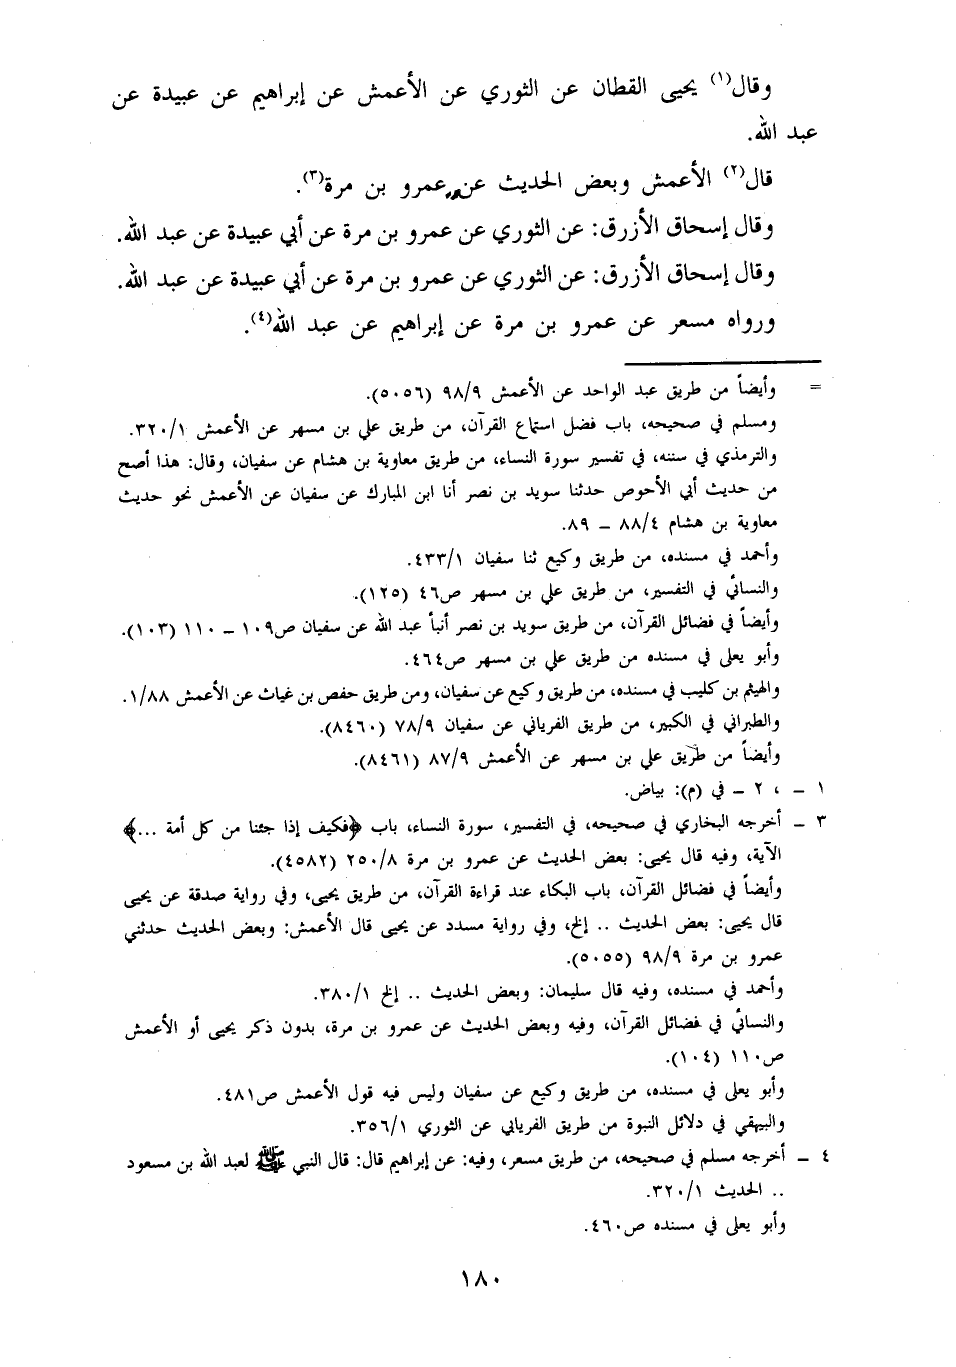 وقال(١) يحيى القطان عن الثوري عن الأعمش عن إبراهيم عن عبيدة عن
عبد الله.
قال(٢) الأعمش وبعض الحديث عن عمرو بن مرة(٣).
وقال إسحاق الأزرق: عن الثوري عن عمرو بن مرة عن أبي عبيدة عن عبد الله.
وقال إسحاق الأزرق: عن الثوري عن عمرو بن مرة عن أبي عبيدة عن عبد الله.
ورواه مسعر عن عمرو بن مرة عن إبراهيم عن عبد الله(٤).
= وأيضاً من طريق عبد الواحد عن الأعمش ٩٨/٩ (٥٠٥٦).
ومسلم في صحيحه، باب فضل استماع القرآن، من طريق علي بن مسهر عن الأعمش ٣٢٠/١.
والترمذي في سننه، في تفسير سورة النساء، من طريق معاوية بن هشام عن سفيان، وقال: هذا أصح
من حديث أبي الأحوص حدثنا سويد بن نصر أنا ابن المبارك عن سفيان عن الأعمش نحو حديث
معاوية بن هشام ٨٨/٤ ـ ٨٩.
وأحمد في مسنده، من طريق وكيع ثنا سفيان ٤٣٣/١.
والنسائي في التفسير، من طريق علي بن مسهر ص٤٦ (١٢٥).
وأيضاً في فضائل القرآن، من طريق سويد بن نصر أنبأ عبد الله عن سفيان ص١٠٩ ـ ١١٠ (١٠٣).
وأبو يعلى في مسنده من طريق علي بن مسهر ص٤٦٤.
والهيثم بن كليب في مسنده، من طريق وكيع عن سفيان، ومن طريق حفص بن غياث عن الأعمش ١/٨٨.
والطبراني في الكبير، من طريق الفرياني عن سفيان ٧٨/٩ (٨٤٦٠).
وأيضاً من طريق علي بن مسهر عن الأعمش ٨٧/٩ (٨٤٦١).
١ ـ ، ٢ ـ في (م): بياض.
٣ ـ أخرجه البخاري في صحيحه، في التفسير، سورة النساء، باب ﴿فكيف إذا جئنا من كل أمة ...﴾
الآية، وفيه قال يحيى: بعض الحديث عن عمرو بن مرة ٢٥٠/٨ (٤٥٨٢).
وأيضاً في فضائل القرآن، باب البكاء عند قراءة القرآن، من طريق يحيى، وفي رواية صدقة عن يحيى
قال يحيى: بعض الحديث .. إلخ، وفي رواية مسدد عن يحيى قال الأعمش: وبعض الحديث حدثني
عمرو بن مرة ٩٨/٩ (٥٠٥٥).
وأحمد في مسنده، وفيه قال سليمان: وبعض الحديث .. إلخ ٣٨٠/١.
والنسائي في فضائل القرآن، وفيه وبعض الحديث عن عمرو بن مرة، بدون ذكر يحيى أو الأعمش
ص١١٠ (١٠٤).
وأبو يعلى في مسنده، من طريق وكيع عن سفيان وليس فيه قول الأعمش ص٤٨١.
والبيهقي في دلائل النبوة من طريق الفريابي عن الثوري ٣٥٦/١.
٤ ـ أخرجه مسلم في صحيحه، من طريق مسعر، وفيه: عن إبراهيم قال: قال النبي ﷺ لعبد الله بن مسعود
.. الحديث ٣٢٠/١.
وأبو يعلى في مسنده ص٤٦٠.
١٨٠